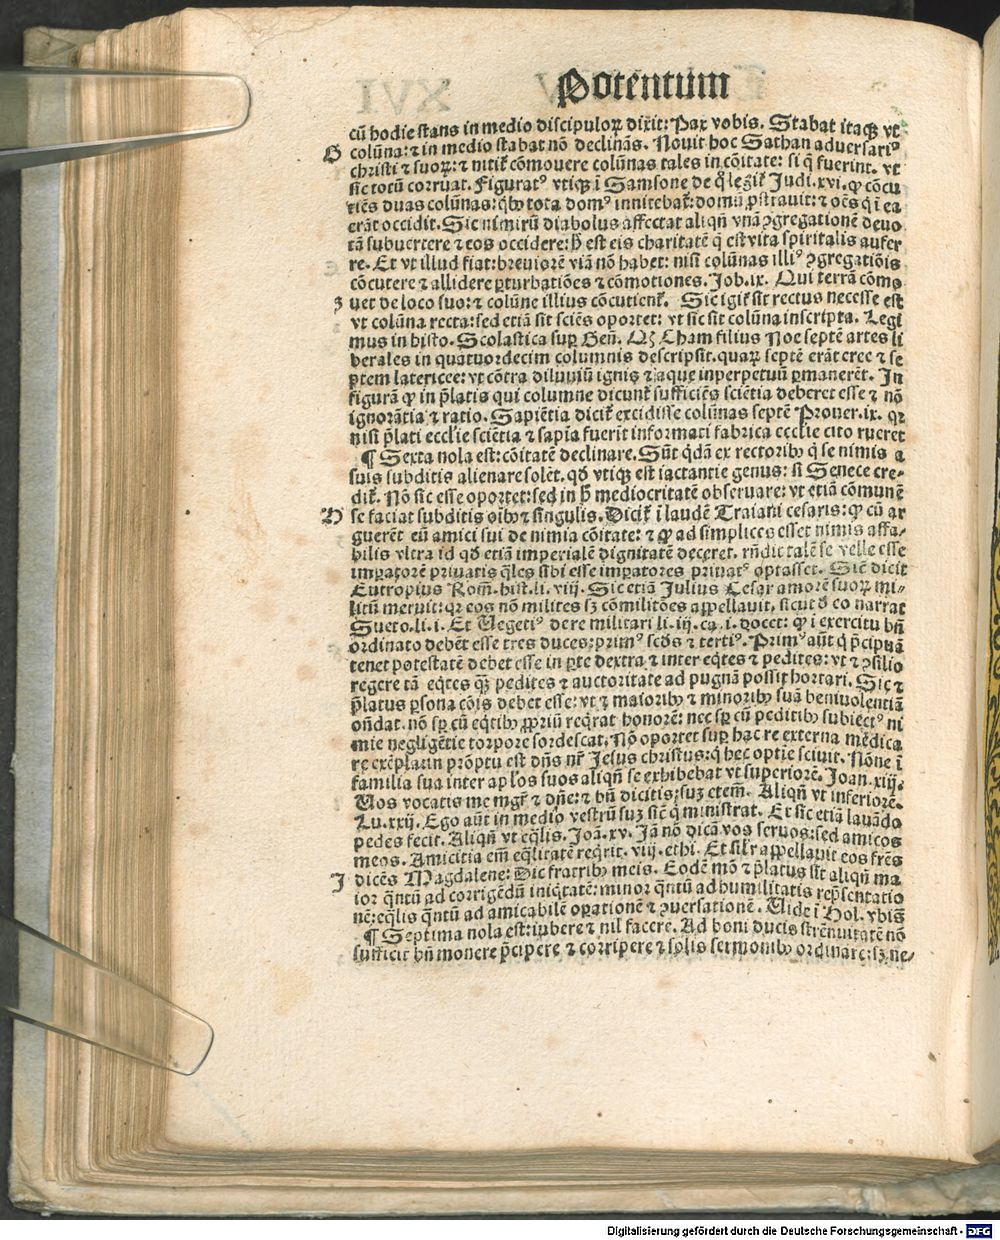 Potentum
cū hodie stans in medio discipuloꝝ dixit: Pax vobis. Stabat itaqꝫ vt
G colūna: ⁊ in medio stabat nō declināns. Nouit hoc Sathan aduersariꝰ
christi ⁊ suoꝝ: ⁊ nitit̄ cōmouere colūnas tales in cōitate: si q̄ fuerint. vt
sic totū corruat. Figuratꝰ vtiqꝫ ī Samsone de q̊ legit̄ Judi.xvi. ꝙ cōcu
tiēs duas colūnas: q̇bꝰ tota domꝰ innitebat̄: domū ꝓstrauit: ⁊ oēs q̇ ī ea
erāt occidit. Sic nimirū diabolus affectat aliqn̄ vnā ꝯgregationē deuo
tā subuertere ⁊ eos occidere: h̄ est eis charitatē q̄ est vita spiritalis aufer
re. Et vt illud fiat: breuiorē viā nō habet: nisi colūnas illiꝰ ꝯgregatiōis
cōcutere ⁊ allidere ꝑturbatiōes ⁊ cōmotiones. Job.ix. Qui terrā cōmo
3 uet de loco suo: ⁊ colūne illius cōcutient̄. Sic igit̄ sit rectus necesse est
vt colūna recta: sed etiā sit sciēs oportet: vt sic sit colūna inscripta. Legi
mus in histo. Scolastica suꝑ Geñ. Qꝫ Cham filius Noe septē artes li
berales in quatuordecim columnis descripsit. quaꝝ septē erāt eree ⁊ se
ptem latericee: vt cōtra diluuiū ignis ⁊ aque inperpetuū ꝑmanerēt. In
figurā ꝙ in p̄latis qui columne dicunt̄ sufficiēs sciētia deberet esse ⁊ nō
ignorātia ⁊ ratio. Sapiētia dicit̄ excidisse colūnas septē Prouer.ix. qꝛ
nisi p̄lati ecclie sciētia ⁊ sapīa fuerit informati fabrica ecclie cito rueret
¶ Sexta nola est: cōitatē declinare. Sūt q̇dā ex rectoribꝰ q̇ se nimis a
suis subditis alienare solēt. qd̄ vtiqꝫ est iactantie genus: si Senece cre-
dit̄. Nō sic esse oportet: sed in h̄ mediocritatē obseruare: vt etiā cōmunē
H se faciat subditis oībꝰ ⁊ singulis. Dicit̄ ī laudē Traiani cesaris: ꝙ cū ar
guerēt eū amici sui de nimia cōitate: ⁊ ꝙ ad simplices esset nimis affa-
bilis vltra id qd̄ etiā imperialē dignitatē deceret. rn̄dit talē se velle esse
imꝑatorē priuatis q̄les sibi esse imꝑatores priuatꝰ optasset. Sic dicit
Eutropius Rom̄. hist. li. viij. Sic etiā Julius Cesar amorē suoꝝ mi-
litū meruit: qꝛ eos nō milites sꝫ cōmilitōes appellauit, sicut d̄ eo narrat
Sueto. li. i. Et Uegetiꝰ de re militari li. iij. ca. i. docet: ꝙ ī exercitu bn̄
ordinato debēt esse tres duces: primꝰ scd̄s ⁊ tertiꝰ. Primꝰ aūt q̇ p̄cipuā
tenet potestatē debet esse in ꝑte dextra ⁊ inter eq̇tes ⁊ pedites: vt ⁊ ꝯsilio
regere tā eq̇tes qꝫ pedites ⁊ auctoritate ad pugnā possit hortari. Sic ⁊
p̄latus ꝑsona cōis debet esse: vt ⁊ maioribꝰ ⁊ minoribꝰ suā beniuolentiā
on̄dat. nō sꝑ cū eq̇tibꝰ ꝓpriū req̇rat honorē: nec sꝑ cū peditibꝰ subiectꝰ ni
mie negligētie torpore sordescat. Nō oportet suꝑ hac re externa mēdica
re exēplarin prōptu est dn̄s nr̄ Jesus christus: q̇ hec optie sciuit. Nōne ī
familia sua inter aplōs suos aliqn̄ se exhibebat vt superiorē. Joan.xiij.
Uos vocatis me mgr̄ ⁊ dn̄e: ⁊ bn̄ dicitis: suꝫ etem̄. Aliqn̄ vt inferiorē.
Lu.xxij. Ego aūt in medio vestrū suꝫ sic̄ q̇ ministrat. Et sic etiā lauādo
pedes fecit. Aliqn̄ vt eq̄lis. Joā. xv. Jā nō dicā vos seruos: sed amicos
meos. Amicitia em̄ eq̄litatē req̇rit. viij. ethi. Et sil̄r appellauit eos frēs
J dicēs Magdalene: Dic fratribꝰ meis. Eodē mō ⁊ p̄latus sit aliqn̄ ma
ior q̄ntū ad corrigēdū iniq̇tatē: minor q̄ntū ad humilitatis rep̄sentatio
nē: eq̄lis q̄ntū ad amicabilē oꝑationē ⁊ ꝯuersationē. Uide ī Hol. vbi s̄
¶ Septima nola est: iubere ⁊ nil facere. Ad boni ducis strēnuitatē nō
sufficit bn̄ monere p̄cipere ⁊ corripere ⁊ solis sermonibꝰ ordinare: sꝫ ne-
Digitalisierung gefördert durch die Deutsche Forschungsgemeinschaft - DFG